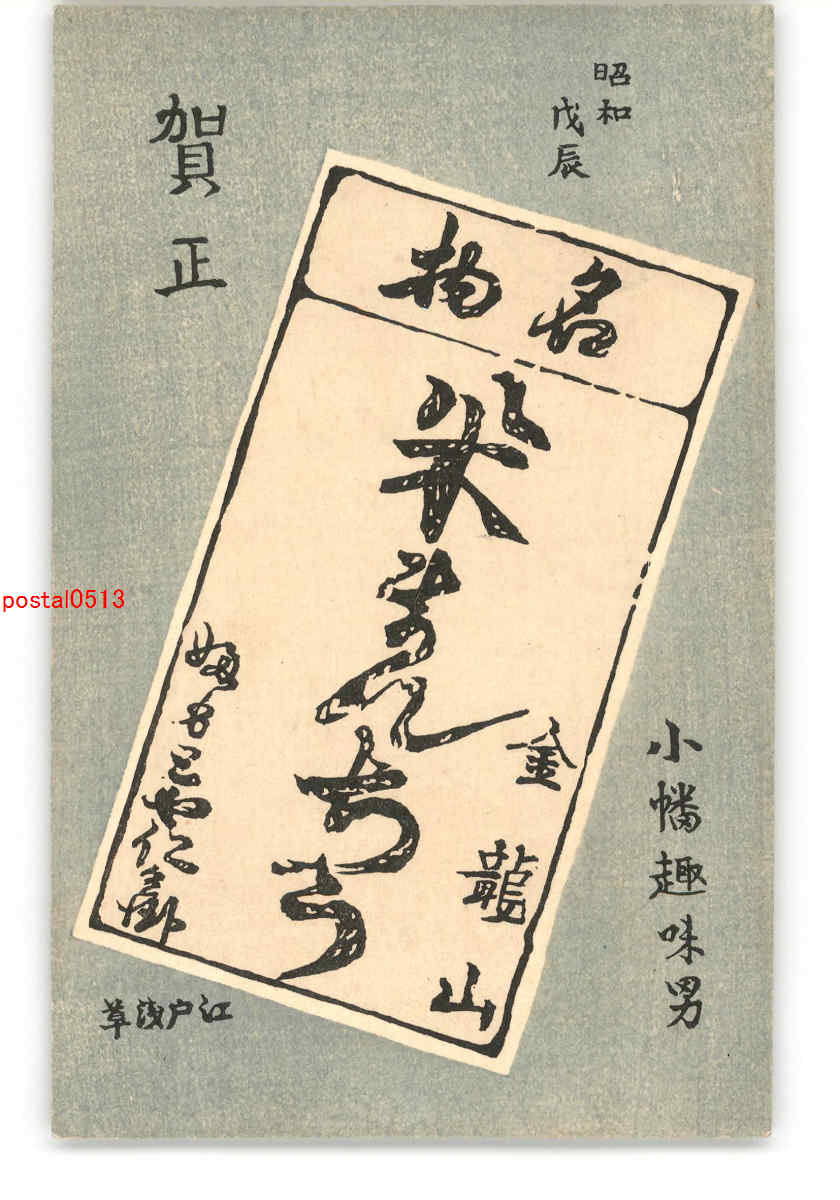 昭和
戊辰
賀正
名物
米まんぢう
金龍山
小幡趣味男
江戸浅草
postal0513